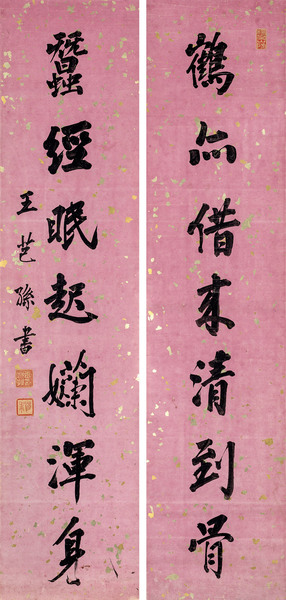 鶴亦借来清到骨
蠶經眠起嬾渾身
王芑孫書